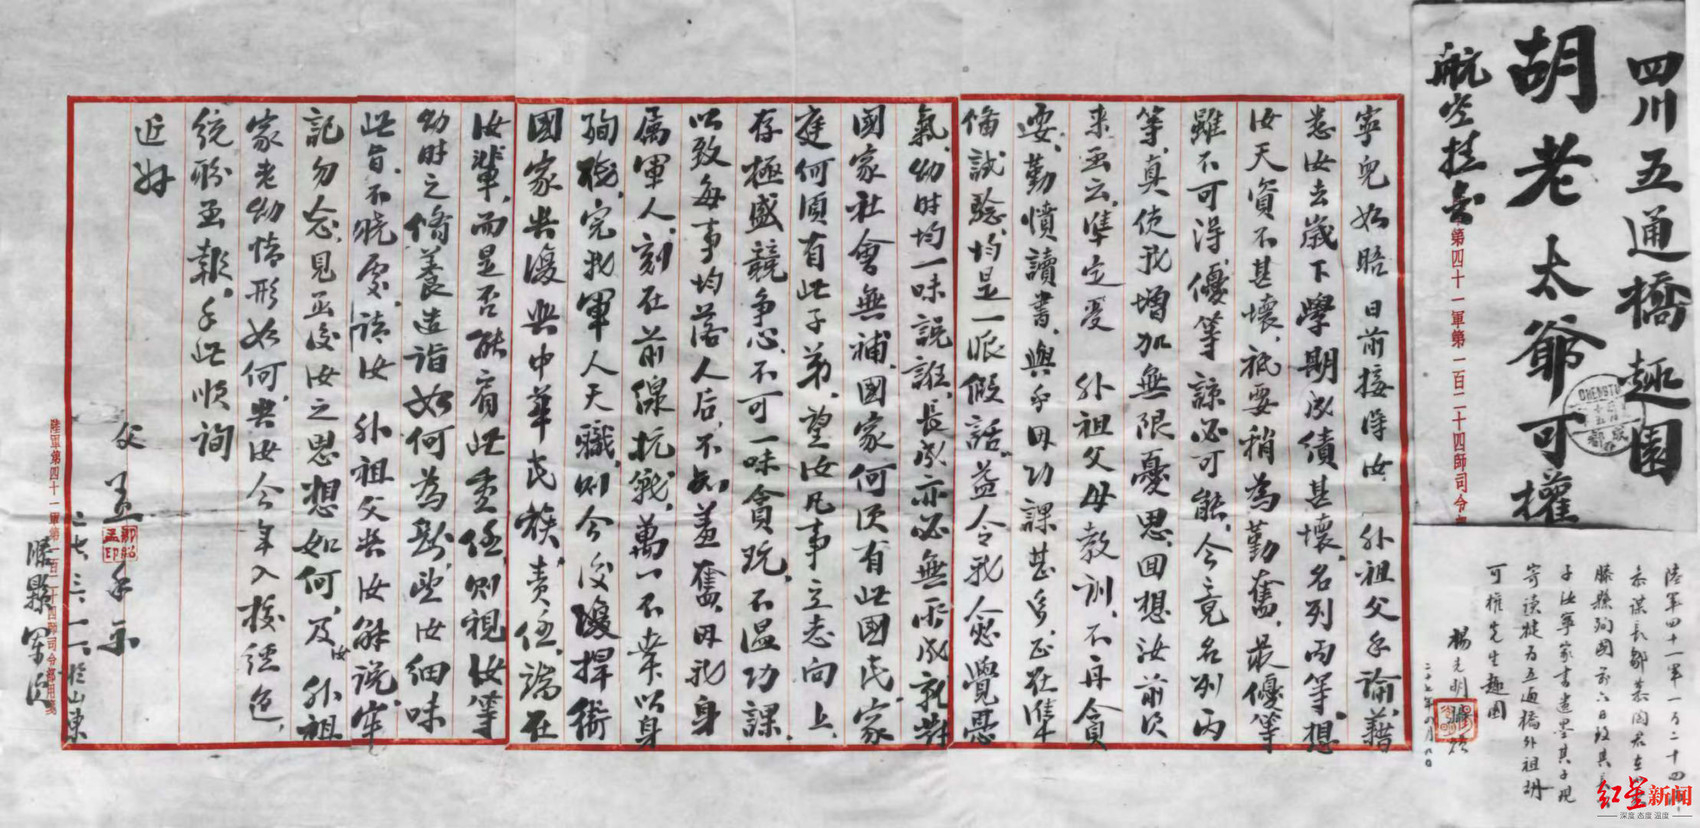 四川五通橋趣園
胡老太爺可權
航空挂号
第四十一軍第一百二十四師司令部
CHENGTU
成都
寧兒如晤日前接得汝 外祖父手諭藉
悉汝去歲下學期成績甚壞名列丙等想
汝天資不甚壞祇要稍為勤奮最優等
雖不可得優等諒必可能今竟名列丙
等真使我增加無限憂思回想汝前次
來函云準定受 外祖父母教訓不再貪
耍勤憤讀書與予毋功課甚多正在準
備試驗均是一派假話益令我愈覺忿
氣幼時均一味説誑長成亦必無所成就對
國家社會無補國家何須有此國民家
庭何須有此子弟望汝凡事立志向上
存極盛競争心不可一味貪玩不温功課
以致每事均落人后不知羞奮毋我身
属軍人刻在前線抗戰萬一不幸以身
殉職完我軍人天職則今後復捍衛
國家與復興中華民族責任端在
汝輩而是否能肩此重任則視汝等
幼時之脩養造詣如何為斷望汝細味
此旨不曉處請汝 外祖父與汝解説牢
記勿忘見函後汝之思想如何及汝外祖
家老幼情形如何與汝今年入校經色
統盼函報手此順詢
近好
父孟手示
廿七三一一於山東
滕縣軍次
陸軍第四十一軍第一百二十四師司令部用箋
陸軍四十一軍一百二十四師
参謀長鄒慕陶君在
滕縣殉國前六日致其
子汝寧家書遺墨其子現
寄讀犍为五通橋外祖胡
可權先生趣園
楊光明
二十七年八月八日
红星新闻
深度 态度 温度